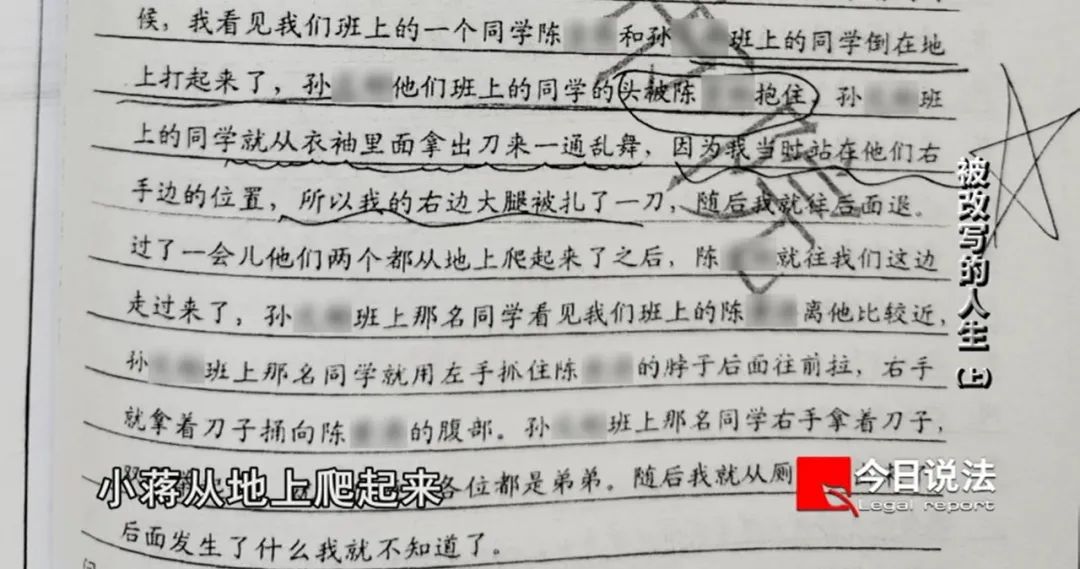 候，我看见我们班上的一个同学陈 和孙 班上的同学倒在地
上打起来了，孙 他们班上的同学的头被陈 抱住，孙 班
上的同学就从衣袖里面拿出刀来一通乱舞，因为我当时站在他们右
手边的位置，所以我的右边大腿被扎了一刀，随后我就往后面退。
过了一会儿他们两个都从地上爬起来了之后，陈 就往我们这边
走过来了，孙 班上那名同学看见我们班上的陈 离他比较近，
孙 班上那名同学就用左手抓住陈 的脖子后面往前拉，右手
就拿着刀子捅向陈 的腹部。孙 班上那名同学右手拿着刀子，
各位都是弟弟。随后我就从厕
后面发生了什么我就不知道了。
小蒋从地上爬起来
今日说法
Legal report
被改写的人生(上)